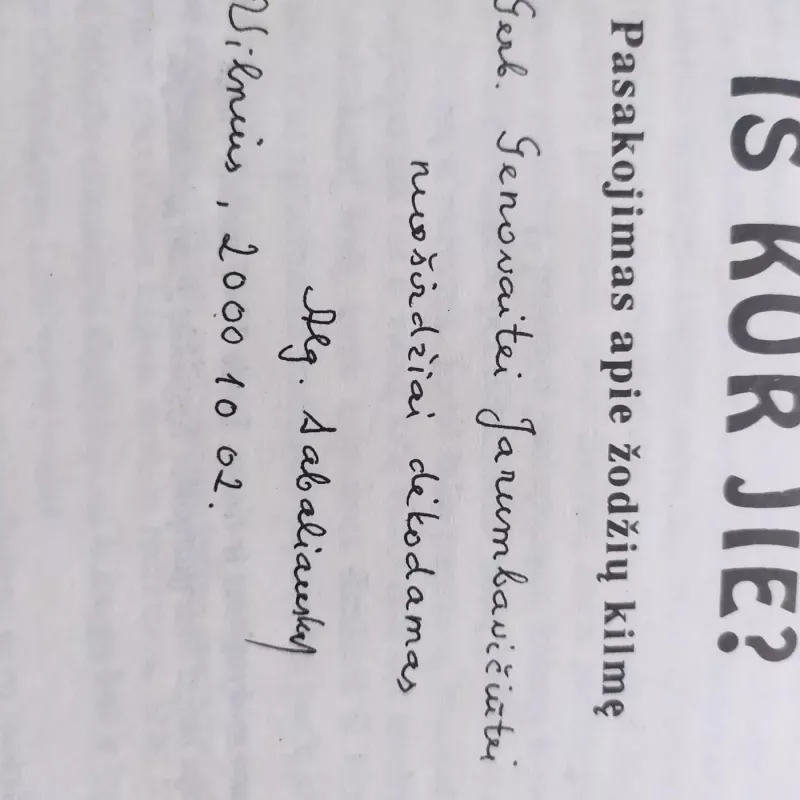 IŠ KUR JIE?
Pasakojimas apie žodžių kilmę
Gerb. Genovaitei Jarumbavičiūtei
nuoširdžiai dėkodamas
Alg. Sabaliauskas
Vilnius, 2000 10 02.